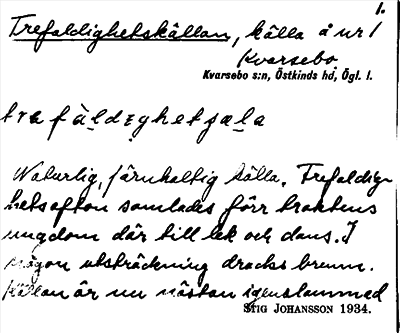 1.
Trefaldighetskällan, källa å nr 1
Kvarsebo.
Kvarsebo s:n, Östkinds hd, Ögl. l.
Naturlig, järnhaltig källa. Trefaldig-
hetsafton samlades förr traktens
ungdom där till lek och dans. I
någon utsträckning dracks brunn.
Källan är nu nästan igenslammad
STIG JOHANSSON 1934.